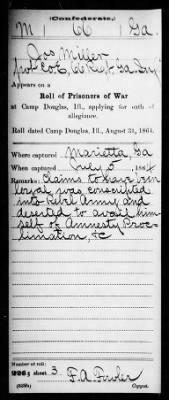 (Confederate.)
M 66 Ga.
Jas Miller
Pvt Co E, 66 Regt Ga. Inf
Appears on a
Roll of Prisoners of War
at Camp Douglas, Ill., applying for oath of
allegiance.
Roll dated Camp Douglas, Ill., August 31, 1864.
Where captured Marietta, Ga
When captured July 5, 1864
Remarks: Claims to have been
loyal, was conscripted
into Rebel Army and
deserted to avail him-
self of Amnesty Proc-
limation, &c
Number of roll:
226; sheet 3
F. A. Fowler
Copyist.